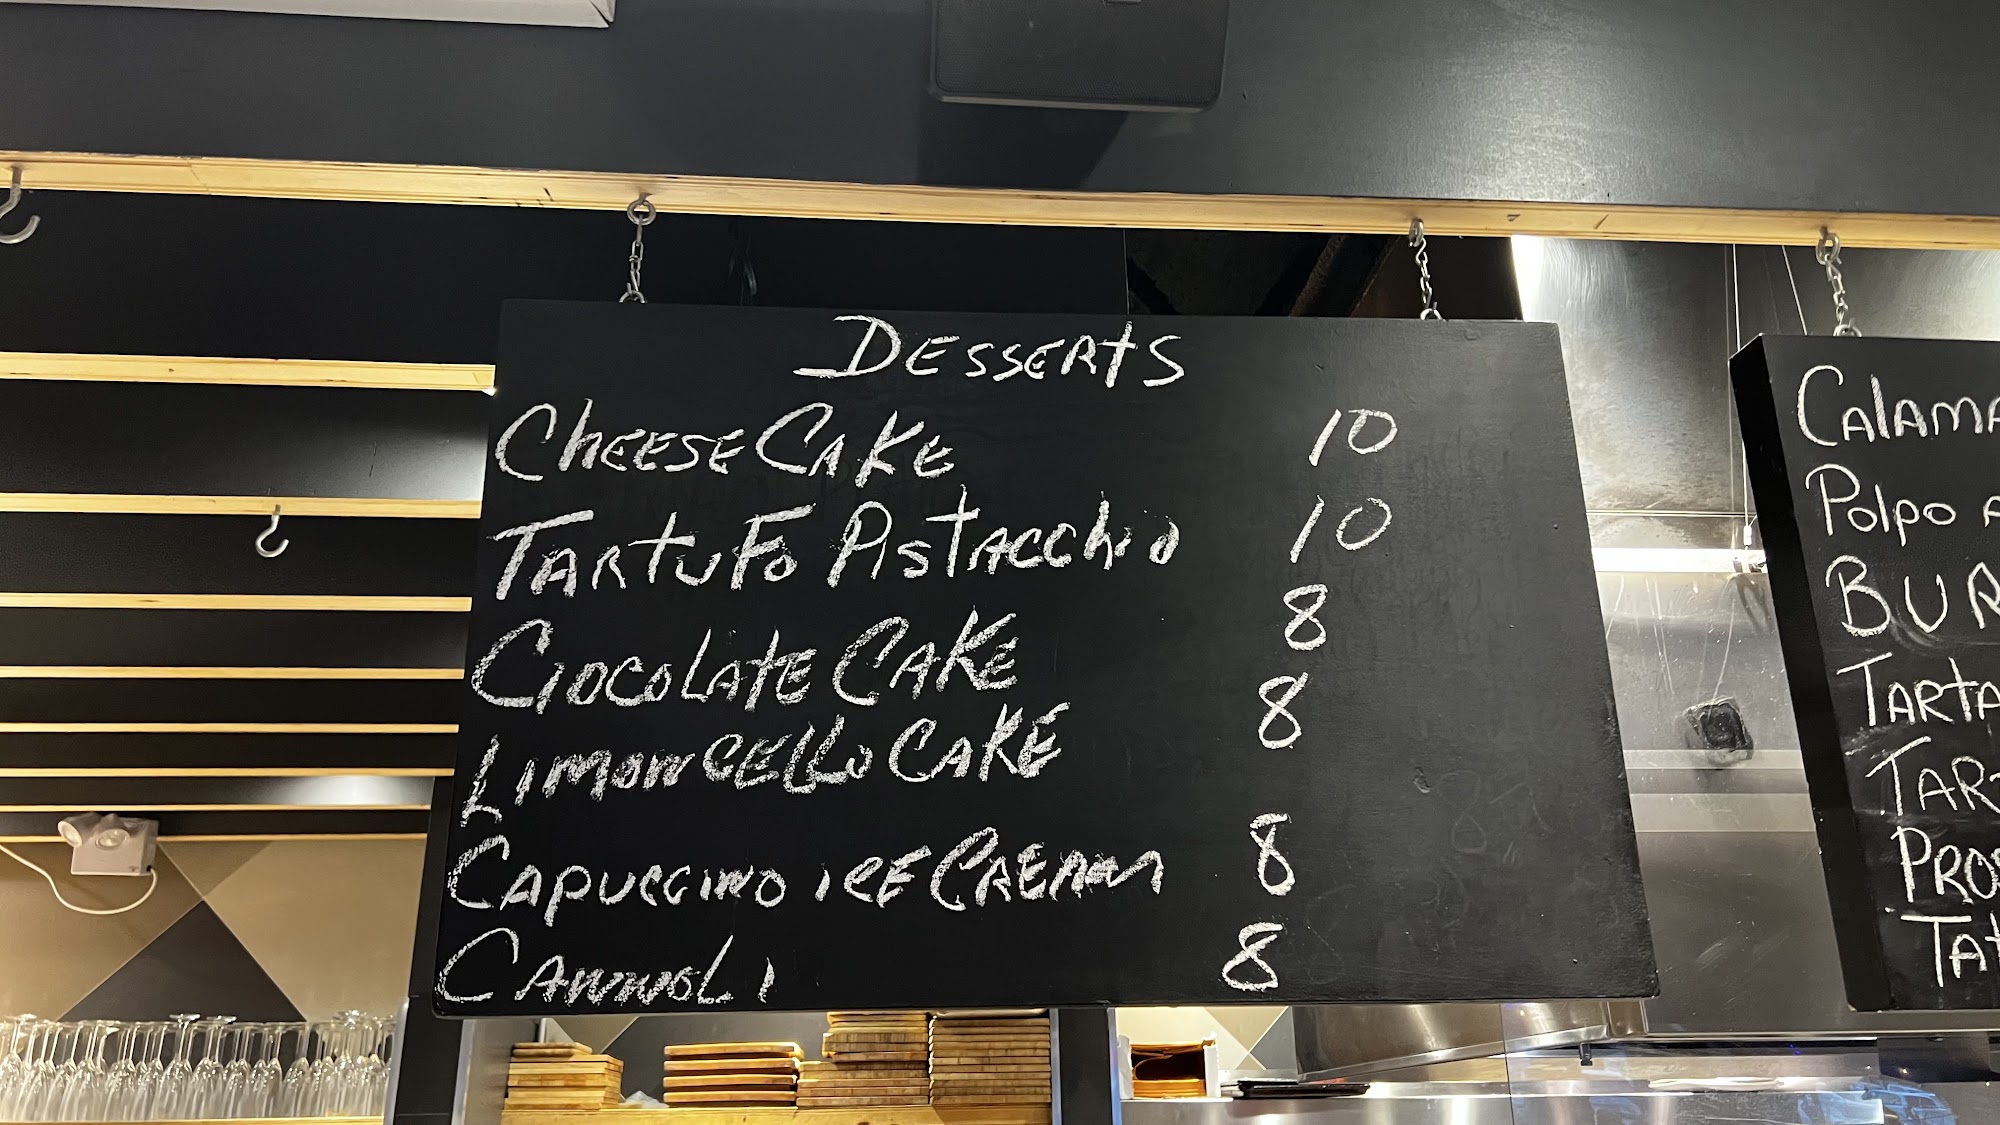 Desserts
CheeseCake 10
Tartufo Pistacchio 10
Ciocolate Cake 8
Limoncello Cake 8
Capuccino ice Cream 8
Cannoli 8
Polpo